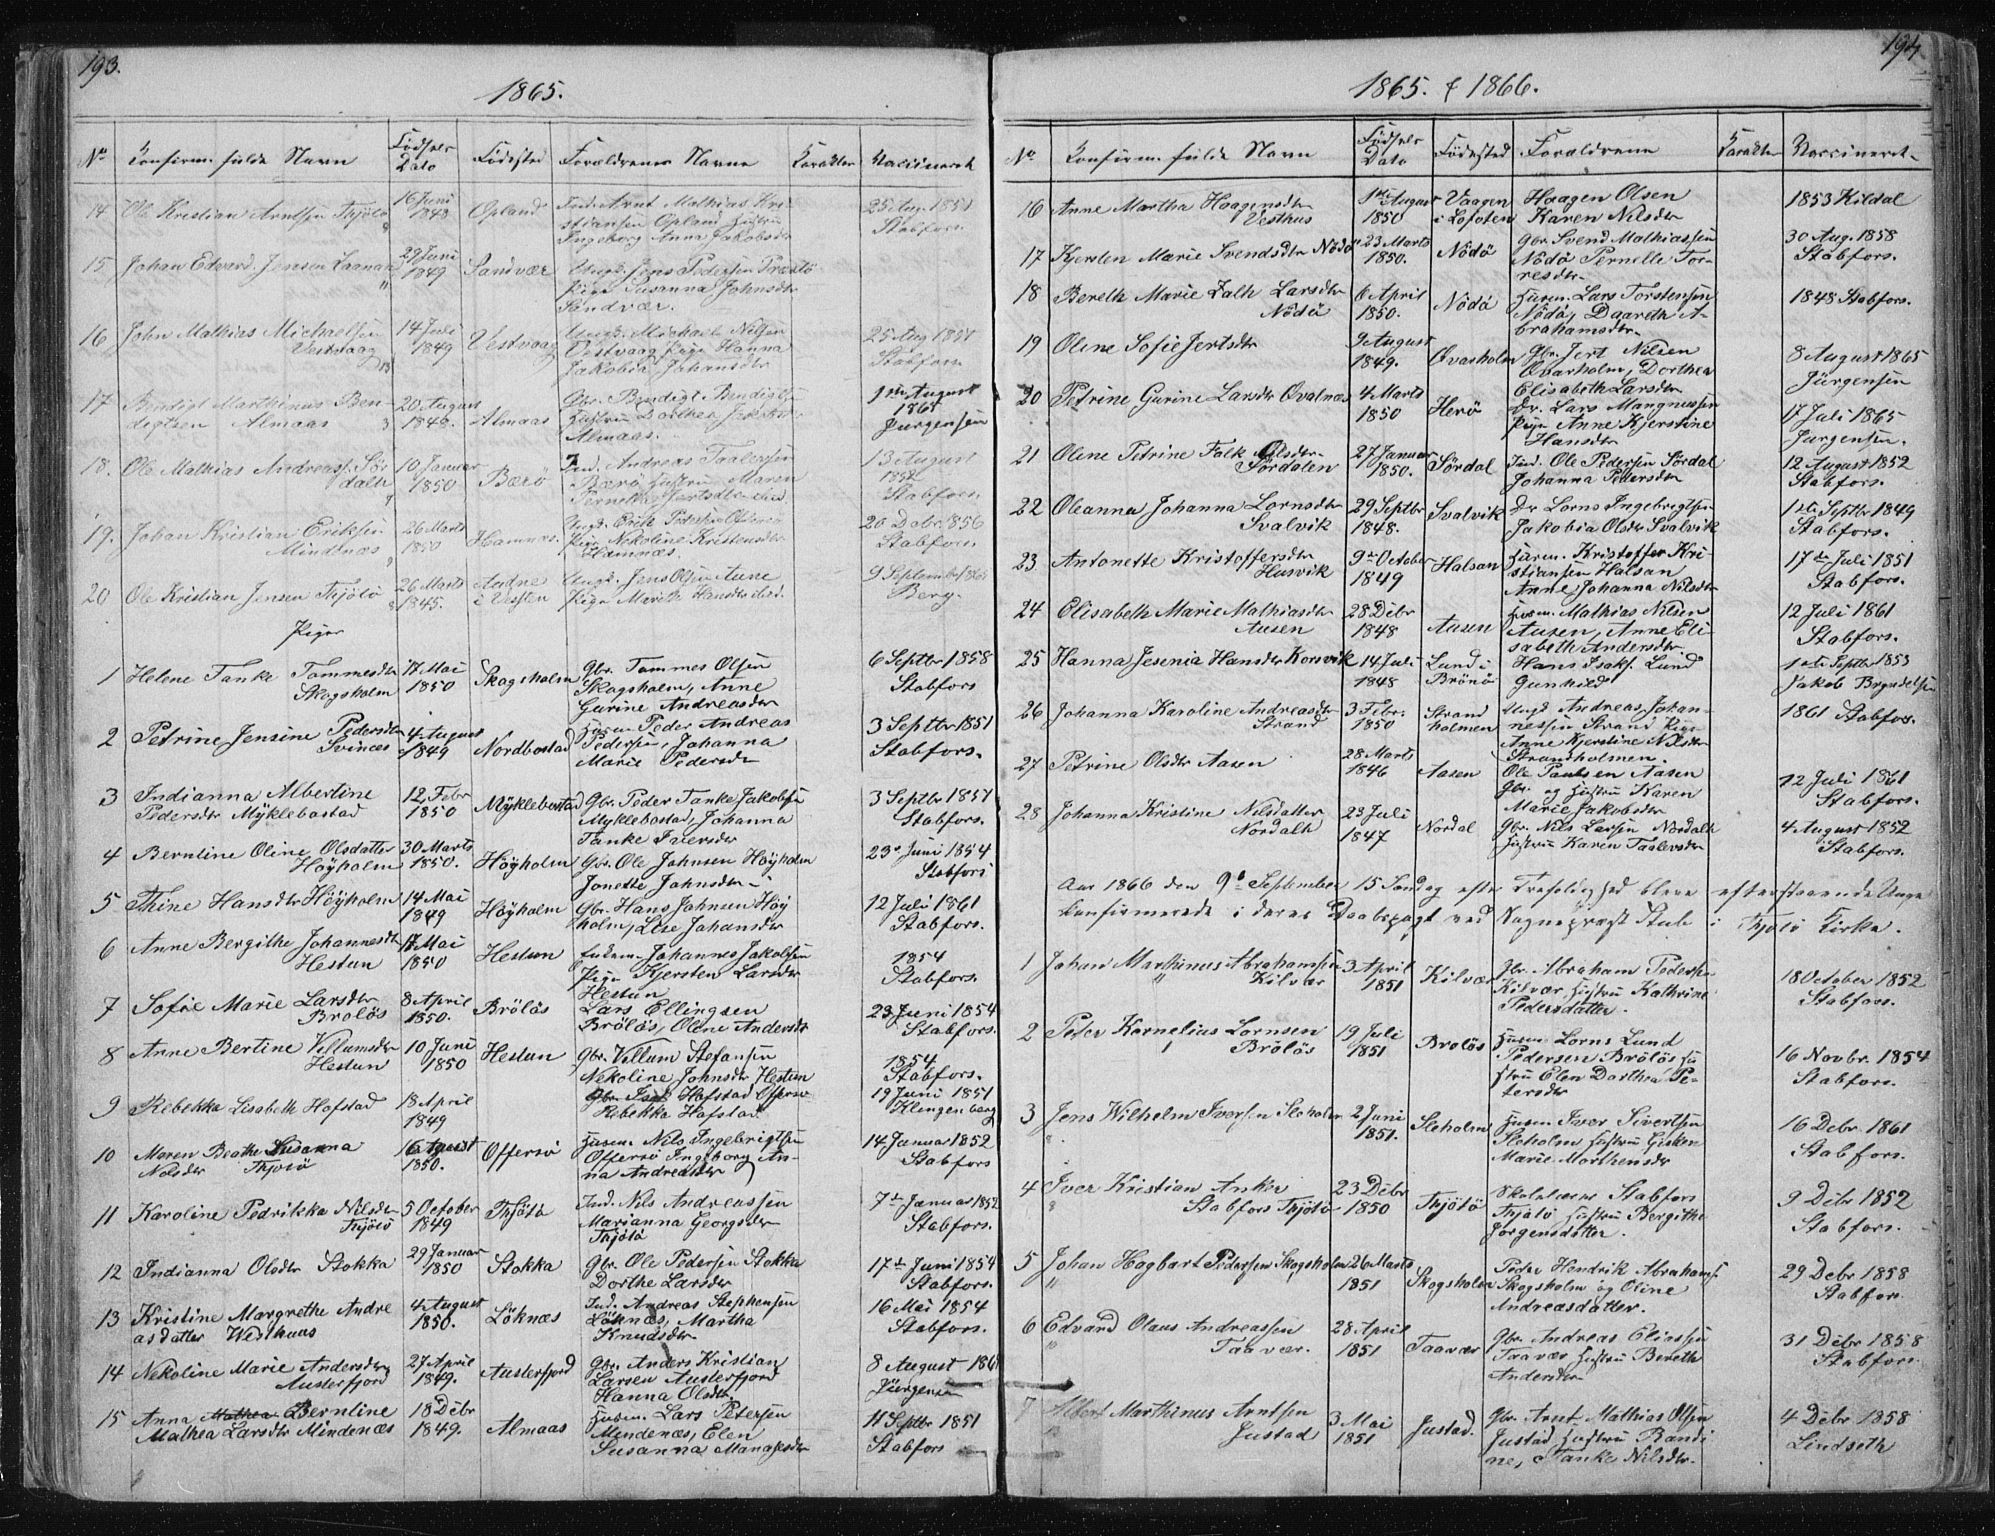 193.
1865.
No Konfirm. fulde Navn Fødsels Dato Fødested Forældrenes Navne Karakter Vaccineret
14 Ole Kristian Arntsen Thjötö 16 Juni 1848 Opland Ind. Arnt Mathias Kristiansen Opland Hustru Ingeborg Anna Jakobsdr 25 Aug. 1851 Stabfors.
15 Johan Edvard Jensen 29 Juni 1849 Sandvær Ungk. Jens Pedersen Pige Susanna Johnsdtr Sandvær.
16 John Mathias Michaelsen Vestvaag 14 Juli 1849 Vestvaag Ungk. Michael Nilsen Vestvaag Pige Hanna Jakobea Johansdtr 25 Aug 1851 Stabfors
17 Bendigt Marthinus Bendigtsen Almaas 20 August 1849. Almaas Gbr. Bendigt Bendigtsen Hustru Dorthea Almaas. 1ste August Jürgensen
18. Ole Mathias Andreass. Sördalh 10 Januar 1850 Bærö Ind. Andreas Taalersen Bærö Hustru Maren Pernelle Jertsdtr ibid 13 August 1852 Stabfors.
19. Johan Kristian Eriksen Mindenæs 26 Marts 1850 Hamnæs. Ungk. Erik Pedersen Offersö Pige Nikoline Kristensdtr Hamnæs. 20 Debr. 1856 Stabfors.
20 Ole Kristian Jensen Thjötö 26 Marts 1845. Andne i Vefsen Ungk. Jens Olsen Aune Pige Marith Hansdtr ibid. 9 September Berg.
Piger
1 Helene Tanke Tommesdtr Skogsholm 17 Mai 1850 Skogsholm Gbr. Tommes Olsen Skogsholm, Anne Gurine Andreasdtr 6 Septbr 1858 Stabfors
2 Petrine Jensine Pedersdtr Svinæs 4 August 1849 Nordbostad Husm Peder Andreas Pedersen, Johanna Marie Pedersdtr 3 Septbr 1851 Stabfors.
3 Indianna Albertine Pedersdtr Myklebostad 12 Febr 1850 Myklebostad Gbr. Peder Tanke Jakobsen Myklebostad, Johanna Tanke Iversdtr 3 Septbr 1851 Stabfors.
4 Berntine Oline Olsdatter Höyholm 30 Marts 1850. Höyholm Gbr. Ole Johnsen Höyholm Jonette Johnsdtr 23 Juni 1854 Stabfors
5 Thine Hansdtr Höyholm 14 Mai 1849 Höyholm Gbr. Hans Johnsen Höyholm, Lise Johansdtr 12 Juli 1861 Stabfors.
6 Anne Bergithe Johannesdtr Hestun 17 Mai 1850 Hestun Enkem. Johannes Jakobsen Pige Kjersten Larsdtr Hestun 1854 Stabfors.
7 Sofie Marie Larsdtr Brolös 8 April 1850. Brölös Lars Ellingsen Brölös, Oline Andersdtr 23 Juni 1854 Stabfors.
8 Anne Bertine Villumsdtr Hestun 10 Juni 1850 Hestun Gbr. Villum Stefansen Nekoline Johnsdtr Hestun 1854 Stabfors.
9 Rebekka Lisabeth Hofstad 18 April 1849 Gbr. Hofstad Offersö Rebekka Hofstad 19 Juni 1851 Klingenberg
10 Maren Beathe Susanna Nilsdtr Thjötö 16 August 1850. Offersö Husm. Nils Ingebrigtsen Offersö Ingeborg Anna Andreasdtr 14 Januar 1852 Stabfors
11 Karoline Fedrikka Nilsdtr Thjötö 5 October 1849 Thjötö Ind. Nils Andreassen Marianna Georgsdtr Thjötö 7de Januar 1852 Stabfors.
12 Indianna Olsdtr Stokka 29 Januar 1850 Stokka Gbr. Ole Pedersen Stokka Dorthe Larsdtr 17de Juni 1854 Stabfors.
13 Kristine Margrethe Andreasdatter Westhuus 4 August 1850. Löknæs Ind. Andreas Stephensen Löknæs, Martha Knudsdtr 16 Mai 1854 Stabfors.
14 Nekoline Marie Andersdtr Austerfjord 27 April 1849. Austerfjord Gbr. Anders Kristian Larsen Austerfjord Hanna Olsdtr. 8 August Jürgensen
15 Anna Mathea Berntine Mathea Larsdtr Mindenæs 18 Debr 1849. Almaas Husm. Lars Petersen Mindenæs, Elen Susanna Manasesdtr 11 Septbr 1851 Stabfors
194
1865. & 1866.
No Konfirm. fulde Navn Fødsels Dato Fødested Forældrene Karakter Vaccineret
16 Anne Martha Haagensdtr Vesthus 1ste August 1850 Vaagen i Lofoten Haagen Olsen Karen Nilsdtr 1853 Kildal
17 Kjersten Marie Svendsdtr Nödö 23 Marts 1850. Nödö Gbr. Svend Mathiassen Nödö Pernelle Torresdtr 30 Aug. 1858 Stabfors.
18 Bereth Marie Zalh Larsdtr Nödö 6 April 1850. Nödö Husm. Lars Torstensen Nödö, Daareth Abrahamsdtr. 1848 Stabfors.
19 Oline Sofie Jertsdtr 9 August 1849. Ovasholm Gbr. Jert Nilsen Ovarholm, Dorthea Elisabeth Larsdtr 8 August 1865 Jürgensen
20 Petrine Gurine Larsdtr Qvalnæs 4 Marts 1850 Herö Dr. Lars Mangnussen Pige Anne Kjerstine Hansdtr 17 Juli 1865 Jurgensen.
21 Oline Petrine Falk Olsdtr Sördalen 27 Januar 1850. Sördal Ind. Ole Pedersen Sördal Johanna Pedersdtr 12 August 1852 Stabfors.
22 Oleanna Johanna Lornsdtr Svalvik 29 Septbr 1848. Svalvik Dr Lorns Ingebrigtsen Jakobia Olsdtr Svalvik 1ste Septbr 1849 Stabfors.
23 Antonette Kristoffersdtr Husvik 9de October 1849 Halsan Husm. Kristoffer Kristiansen Halsan Anne Johanna Nilsdtr 17de Juli 1851 Stabfors.
24 Elisabeth Marie Mathiasdtr Ausen 28 Debr 1848 Aasen Husm. Mathias Nilsen Ausen, Anne Elisabeth Andersdtr. 12 Juli 1861 Stabfors.
25 Hanna Jesenia Hansdtr Korsvik 14 Juli 1848 Lund i Brönö Hans Isaks. Lund Gunhild 1ste Septbr 1853 Jakob Bryndelsen
26 Johanna Karoline Andreasdtr Strand 3 Febr. 1850 Strandholmen Ungk Andreas Johannessen Strand Pige Anne Kjerstine Nilsdtr Strandholmen. 1861 Stabfors.
27 Petrine Olsdtr Aasen 28 Marts 1846 Aasen Ole Paulsen Aasen Gbr. og Hustru Karen Marie Jakobsdtr 12 Juli 1861 Stabfors.
28 Johanna Kristine Nilsdatter Nordalh 23 Juli 1847 Nordal Gbr. Nils Larsen Nordalh Hustru Karen Taalevsdtr 4 August 1852 Stabfors.
Aar 1866 den 9de September 15 Söndag efter Trefoldighed bleve efterstaaende Unge
konfirmerede i deres Daabspagt ved Sognepræst Stub i Thjötö Kirke.
1 Johan Marthinus Abrahamsen Kilvær 3 April 1851 Kilvær Gbr. Abraham Pedersen Kilvær Hustru Kathrine Pedersdatter. 18 October 1852 Stabfors.
2 Peder Kornelius Lornsen Brölös 19 Juli 1851 Brolös Husm. Lorns Lund Pedersen Brölös Hustru Elen Dorthea Petersdtr 16 Novbr. 1854 Stabfors.
3 Jens Wilhelm Iversen Sleholm 2 Juni 1851. Sleholm Husm Iver Sivertsen Sleholm Hustru Gisken Marie Morthensdtr 16 Debr 1861 Stabfors.
4 Iver Kristian Anker Stabfors Thjötö 23 Debr 1850 Thjötö Skolelærer Stabfors Thjötö Hustru Bergithe Jörgensdatter. 9 Debr 1852 Stabfors.
5 Johan Hagbart Pedersen Skogsholm 26 Marts 1851 Skogsholm Peder Hendrik Abrahams. Skogsholm og Oline Andreasdatter. 29 Debr 1858 Stabfors.
6 Edvard Olaus Andreassen Taavær. 28 April 1851 Taavær Gbr. Andreas Eliassen Taavær Hustru Bereth Andersdtr 31 Debr 1858 Stabfors.
7 Albert Marthinus Arntsen Justad 3 Mai 1851 Justad. Gbr. Arnt Mathias Olsen Justad Hustru Randine, Tanke Nilsdtr. 4 Debr 1858 Lindseth